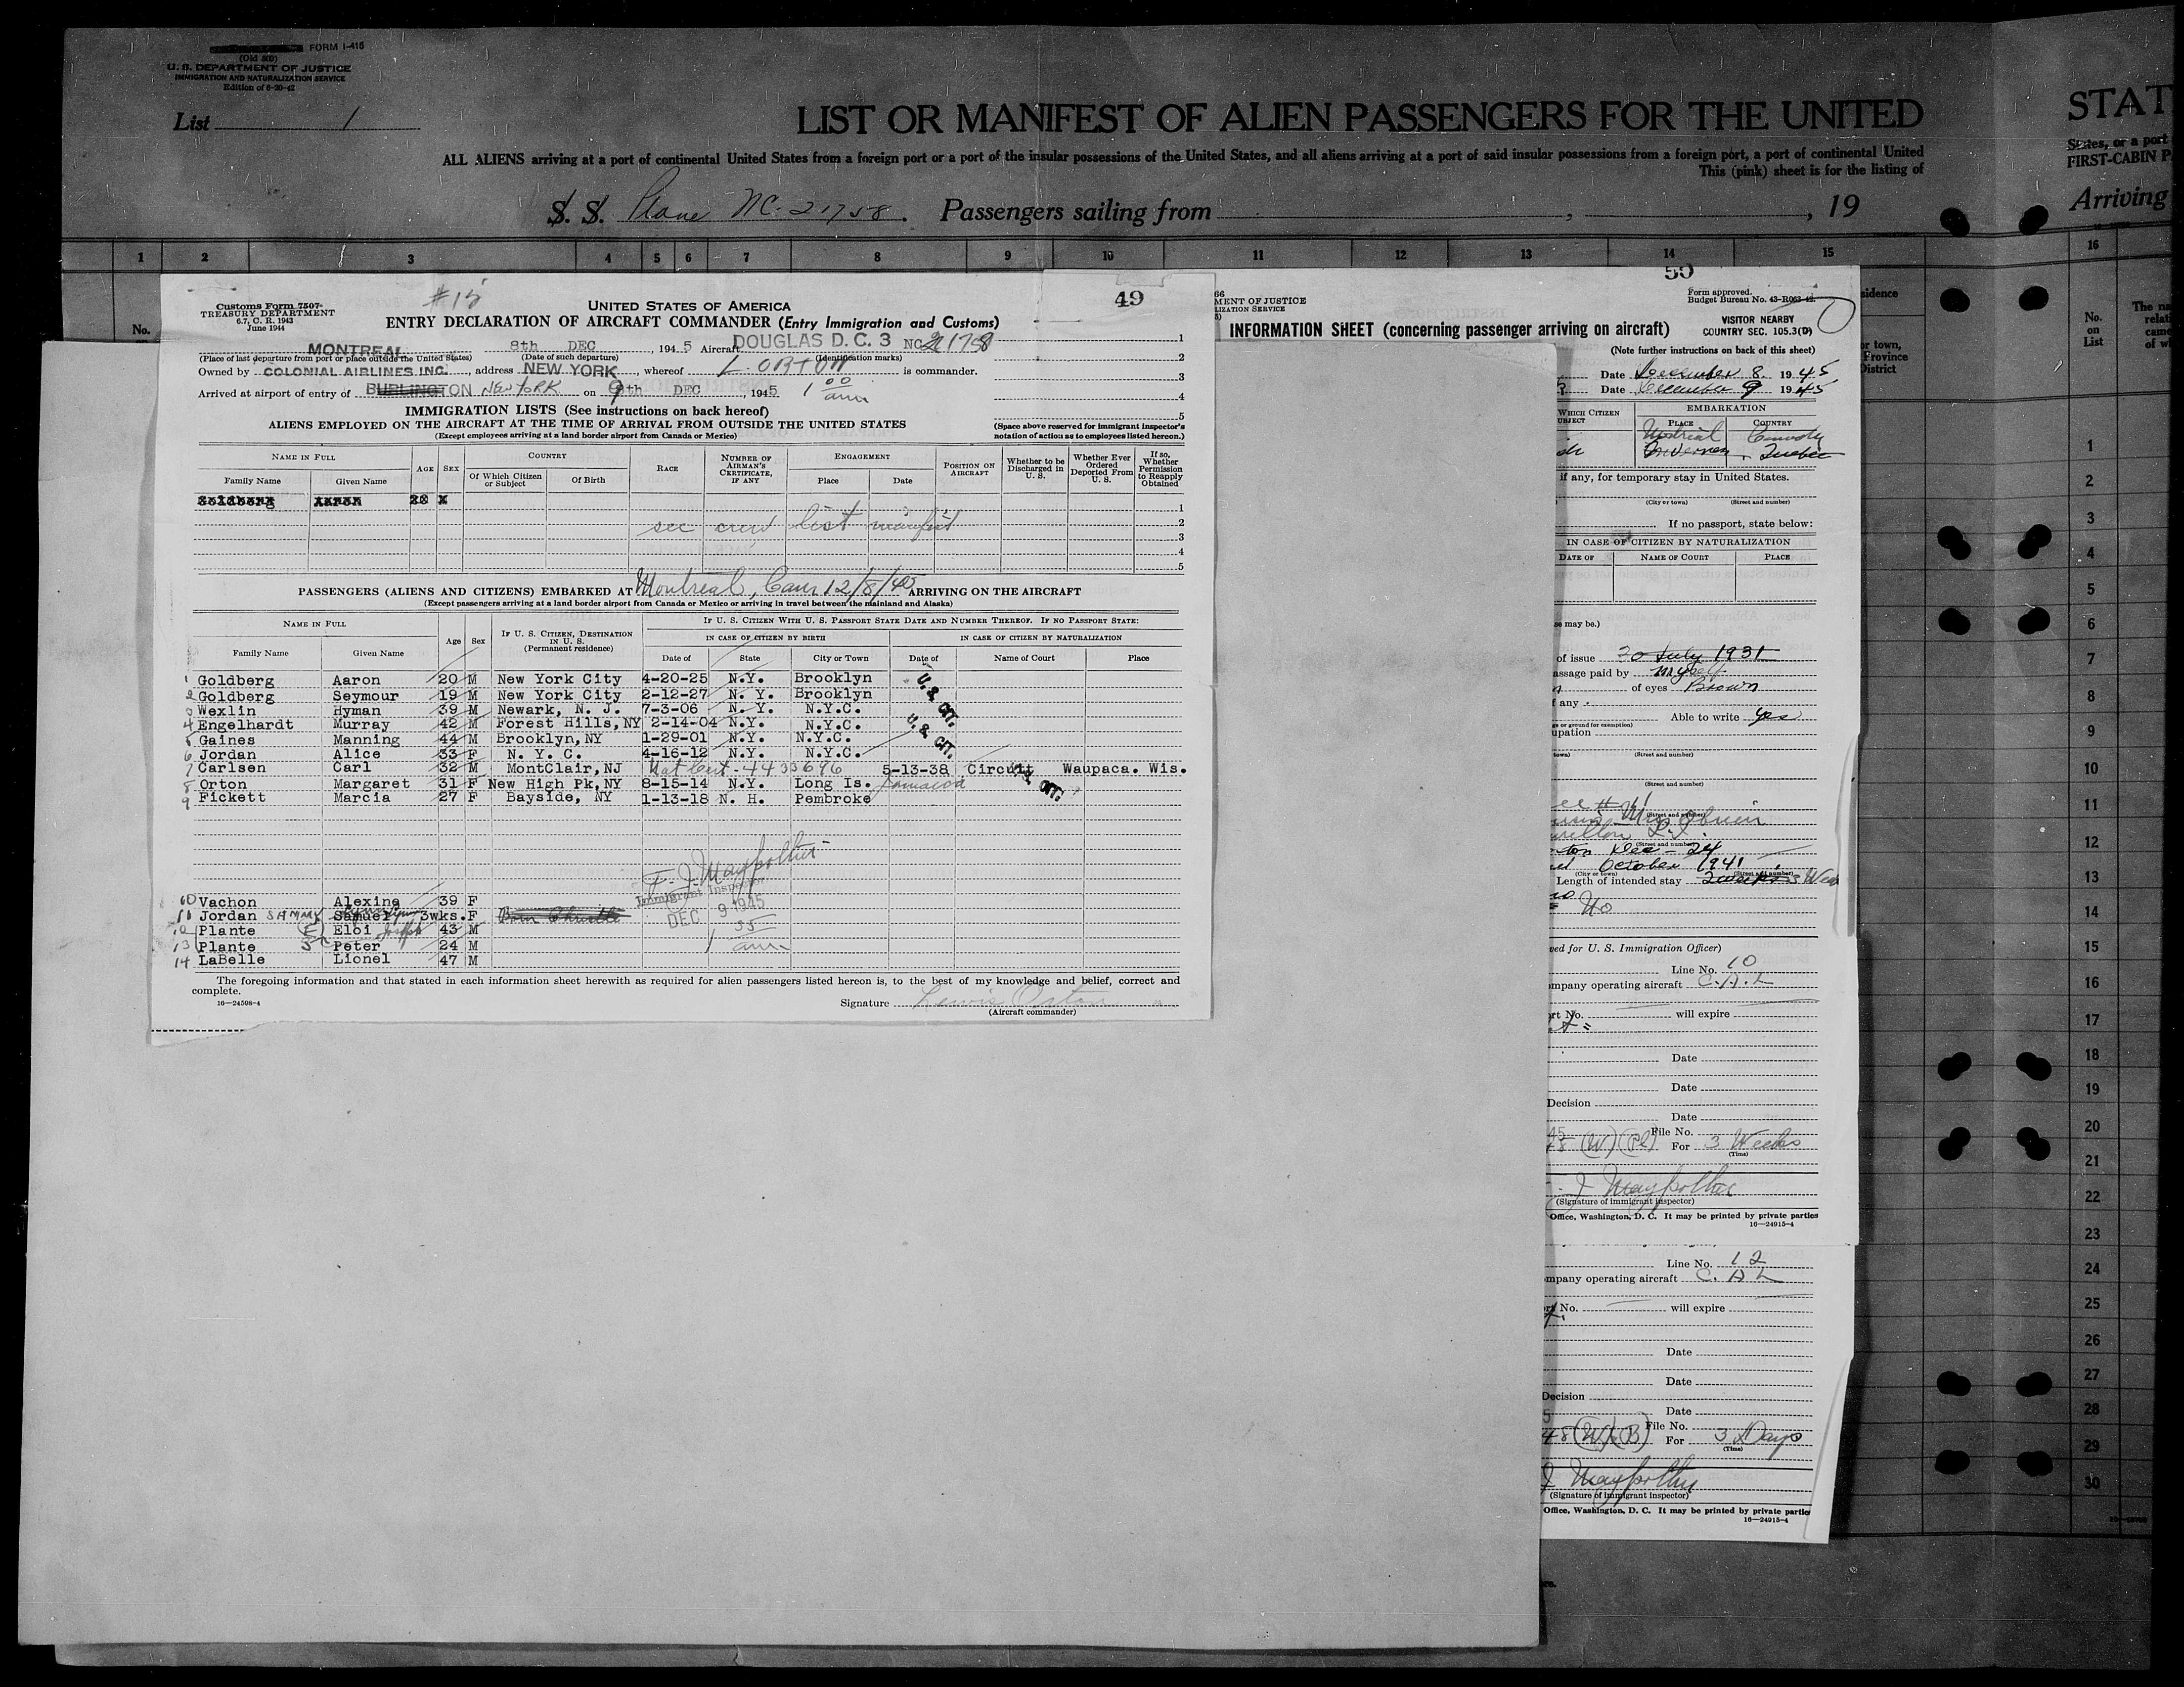 FORM I-415
(Old 500)
U. S. DEPARTMENT OF JUSTICE
IMMIGRATION AND NATURALIZATION SERVICE
Edition of 6-20-42
List 1
LIST OR MANIFEST OF ALIEN PASSENGERS FOR THE UNITED
ALL ALIENS arriving at a port of continental United States from a foreign port or a port of the insular possessions of the United States, and all aliens arriving at a port of said insular possessions from a foreign port, a port of continental United
This (pink) sheet is for the listing of
S. S. Plane NC-21758. Passengers sailing from , , 19
STAT
States, or a port
FIRST-CABIN P
Arriving
1 2 3 4 5 6 7 8 9 10 11 12 13 14 15 16
No.
#15
Customs Form 7507
TREASURY DEPARTMENT
6.7, C. R. 1943
June 1944
49
UNITED STATES OF AMERICA
ENTRY DECLARATION OF AIRCRAFT COMMANDER (Entry Immigration and Customs)
MONTREAL 8th DEC, 1945 Aircraft DOUGLAS D.C. 3 NC 21758
(Place of last departure from port or place outside the United States) (Date of such departure) (Identification marks)
Owned by COLONIAL AIRLINES INC., address NEW YORK, whereof L. ORTON is commander.
Arrived at airport of entry of BURLINGTON NEW YORK on 9th DEC, 1945 1 00 am
IMMIGRATION LISTS (See instructions on back hereof)
ALIENS EMPLOYED ON THE AIRCRAFT AT THE TIME OF ARRIVAL FROM OUTSIDE THE UNITED STATES
(Except employees arriving at a land border airport from Canada or Mexico)
1
2
3
4
5
(Space above reserved for immigrant inspector's
notation of action as to employees listed hereon.)
NAME IN FULL
Family Name Given Name
AGE SEX
COUNTRY
Of Which Citizen or Subject Of Birth
RACE
NUMBER OF AIRMAN'S CERTIFICATE, IF ANY
ENGAGEMENT
Place Date
POSITION ON AIRCRAFT
Whether to be Discharged in U. S.
Whether Ever Ordered Deported From U. S.
If so, Whether Permission to Reapply Obtained
Goldberg Aaron 20 M
1
see crew list manifest 2
3
4
5
PASSENGERS (ALIENS AND CITIZENS) EMBARKED AT Montreal, Can 12/8/45 ARRIVING ON THE AIRCRAFT
(Except passengers arriving at a land border airport from Canada or Mexico or arriving in travel between the mainland and Alaska)
NAME IN FULL
Family Name Given Name
Age Sex
IF U. S. CITIZEN, DESTINATION IN U. S.
(Permanent residence)
IF U. S. CITIZEN WITH U. S. PASSPORT STATE DATE AND NUMBER THEREOF. IF NO PASSPORT STATE:
IN CASE OF CITIZEN BY BIRTH IN CASE OF CITIZEN BY NATURALIZATION
Date of State City or Town Date of Name of Court Place
1 Goldberg Aaron 20 M New York City 4-20-25 N.Y. Brooklyn
2 Goldberg Seymour 19 M New York City 2-12-27 N. Y. Brooklyn
U. S. CIT.
3 Wexlin Hyman 39 M Newark, N. J. 7-3-06 N. Y. N.Y.C.
4 Engelhardt Murray 42 M Forest Hills, NY 2-14-04 N.Y. N.Y.C.
5 Gaines Manning 44 M Brooklyn, NY 1-29-01 N.Y. N.Y.C.
U. S. CIT.
6 Jordan Alice 33 F N. Y. C. 4-16-12 N.Y. N.Y.C.
7 Carlsen Carl 32 M MontClair, NJ Nat Cert - 4433696 5-13-38 Circuit Waupaca. Wis.
8 Orton Margaret 31 F New High Pk, NY 8-15-14 N.Y. Long Is. Jamaica
U. S. CIT.
9 Fickett Marcia 27 F Bayside, NY 1-13-18 N. H. Pembroke
F. J. Maypother
Immigrant Inspector
DEC 9 1945
1 35 am
10 Vachon Alexina 39 F
11 Jordan SAMMY Samuel Lynn 3wks. F
12 Plante (E) Eloi Joseph 43 M
13 Plante Peter 24 M
14 LaBelle Lionel 47 M
The foregoing information and that stated in each information sheet herewith as required for alien passengers listed hereon is, to the best of my knowledge and belief, correct and
complete.
16—24598-4
Signature Lewis Orton
(Aircraft commander)
50
66
MENT OF JUSTICE
LIZATION SERVICE
Form approved.
Budget Bureau No. 43-R063-42.
INFORMATION SHEET (concerning passenger arriving on aircraft)
VISITOR NEARBY
COUNTRY SEC. 105.3(D)
(Note further instructions on back of this sheet)
Date December 8. 1945
Date December 9 1945
WHICH CITIZEN
UBJECT
EMBARKATION
PLACE COUNTRY
Montreal Canada
Quebec
if any, for temporary stay in United States.
(City or town) (Street and number)
If no passport, state below:
IN CASE OF CITIZEN BY NATURALIZATION
DATE OF NAME OF COURT PLACE
se may be.)
of issue 30 July 1931
assage paid by myself
of eyes Brown
f any
Able to write yes
upation
town) (Street and number)
(Street and number)
(Street and number)
(Street and number)
Dec - 24
October 1941
(City or town) (Street and number)
Length of intended stay 2 weeks 3 Weeks
No
ved for U. S. Immigration Officer)
Line No. 10
ompany operating aircraft C.A.L
ort No. will expire
Date
Date
Decision
Date
File No.
For 3 Weeks
(Time)
J Maypother
(Signature of immigrant inspector)
Office, Washington, D. C. It may be printed by private parties
16—24915-4
Line No. 12
ompany operating aircraft C. A L
ort No. will expire
Date
Date
Decision
Date
File No.
48 (W)(B) For 3 Days
(Time)
J Maypother
(Signature of immigrant inspector)
Office, Washington, D. C. It may be printed by private parties
16—24915-4
sidence
or town,
Province
District
No.
on
List
The na
relati
came
of w
1
2
3
4
5
6
7
8
9
10
11
12
13
14
15
16
17
18
19
20
21
22
23
24
25
26
27
28
29
30